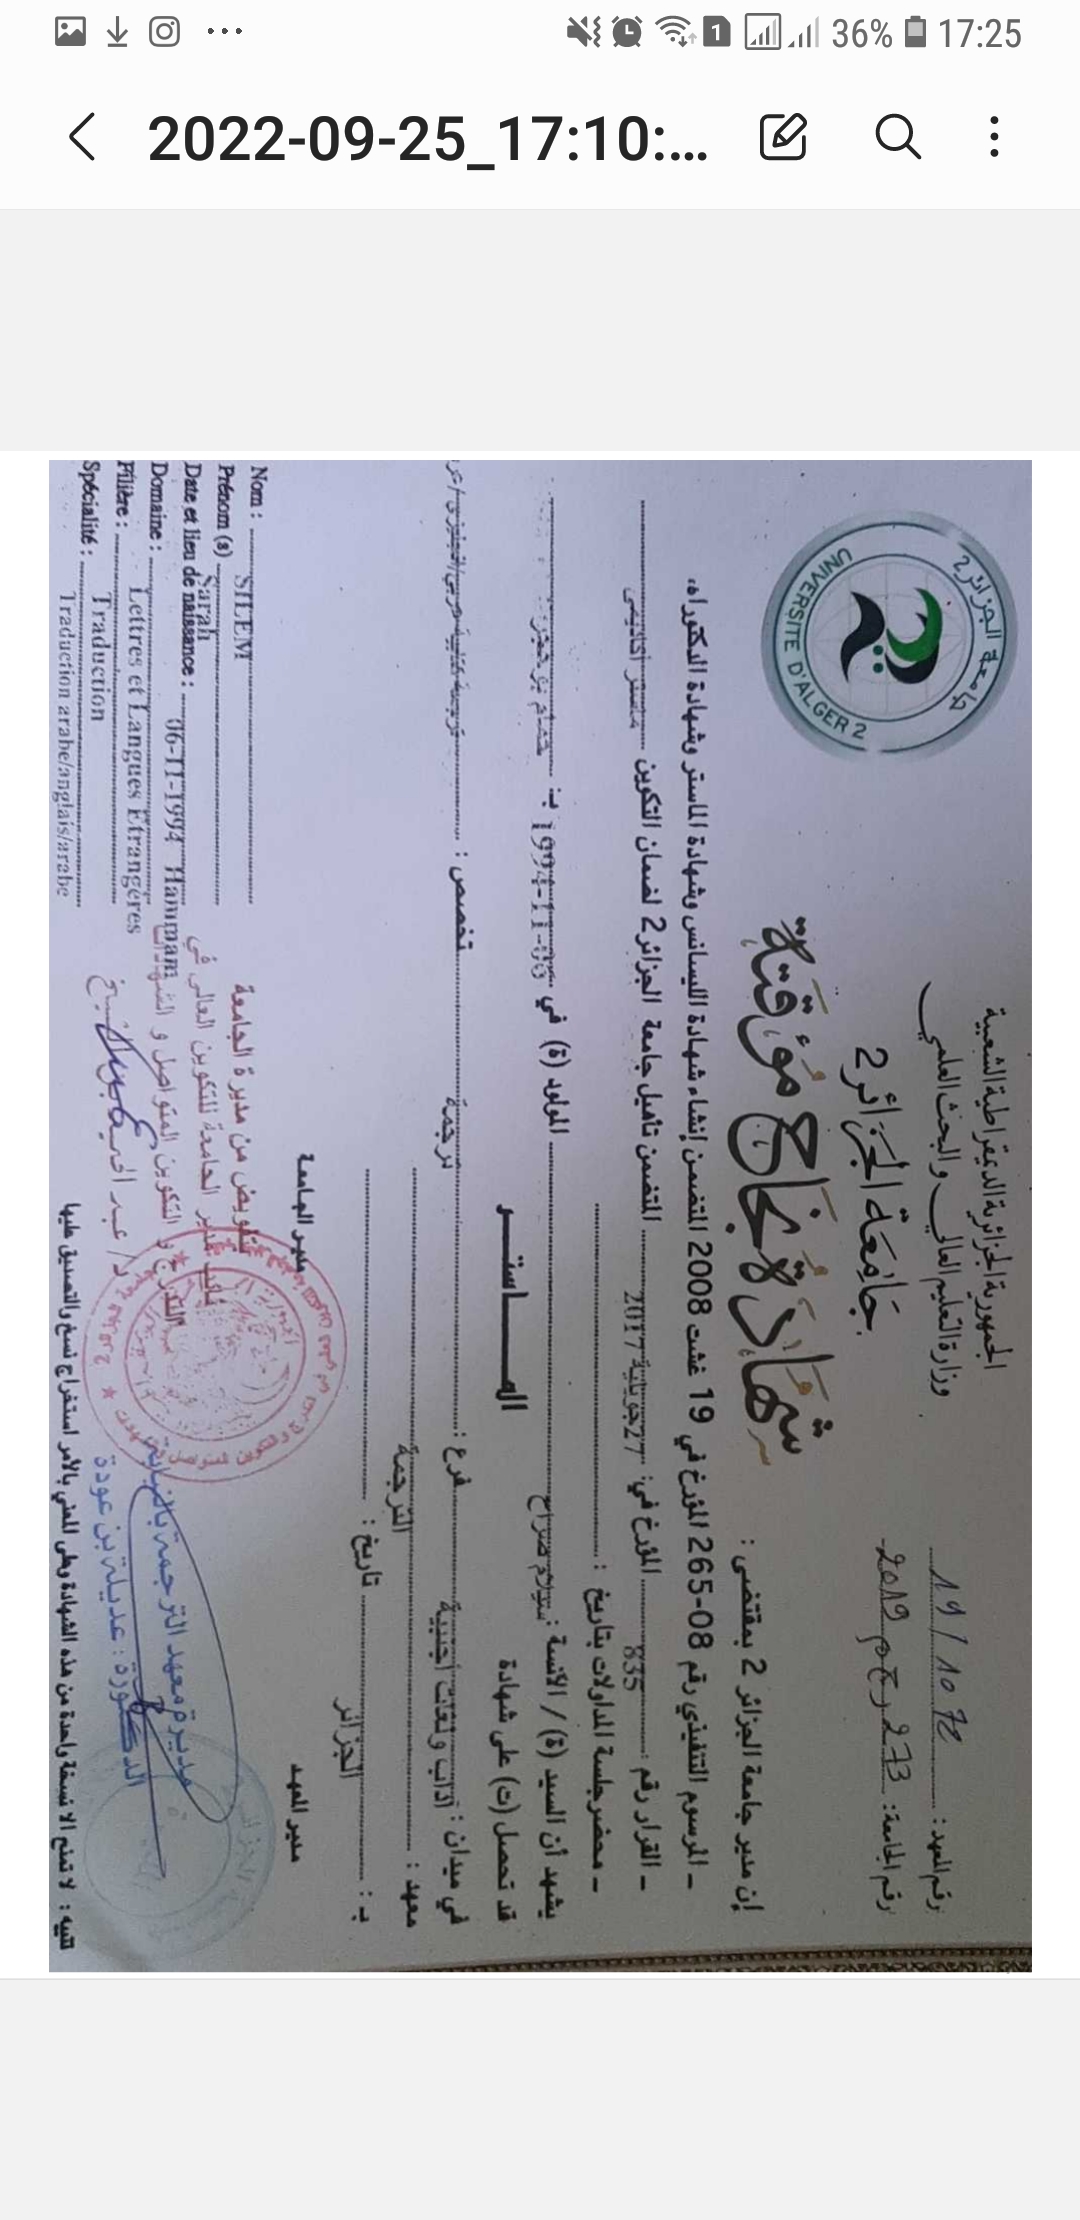 36% 17:25
2022-09-25_17:10:...
الجمهورية الجزائرية الديمقراطية الشعبية
وزارة التعليم العالي والبحث العلمي
جامعة الجزائر 2
جامعة الجزائر 2
UNIVERSITE D'ALGER 2
رقم المعهد: 19 / 1072
رقم الجامعة: 273
2019
شهادة نجاح مؤقتة
إن مدير جامعة الجزائر 2 بمقتضى :
- المرسوم التنفيذي رقم 08-265 المؤرخ في 19 غشت 2008 المتضمن إنشاء شهادة الليسانس وشهادة الماستر وشهادة الدكتوراه.
- القرار رقم : 835 المؤرخ في: 27 جويلية 2017 المتضمن تأهيل جامعة الجزائر 2 لضمان التكوين ماستر أكاديمي
- محضر جلسة المداولات بتاريخ :
يشهد أن السيد (ة) / الآنسة : سيلام صراح المولود (ة) في 06-11-1994 بـ: حمام
قد تحصل (ت) على شهادة
المـــاستـــر
في ميدان : آداب ولغات أجنبية فرع : ترجمة تخصص :
معهد : الترجمة
بـ : الجزائر تاريخ :
مدير المعهد
مدير الجامعة
مديرة معهد الترجمة بالنيابة
الدكتورة : عديلة بن عودة
بتفويض من مديرة الجامعة
نائب مدير الجامعة للتكوين العالي في
التدرج و التكوين المتواصل و الشهادات
Nom : SILEM
Prénom (s) Sarah
Date et lieu de naissance : 06-11-1994 Hammam
Domaine : Lettres et Langues Etrangères
Filière : Traduction
Spécialité : Traduction arabe/anglais/arabe
تنبيه : لا تمنح الا نسخة واحدة من هذه الشهادة وعلى المعني بالأمر استخراج نسخ والتصديق عليها